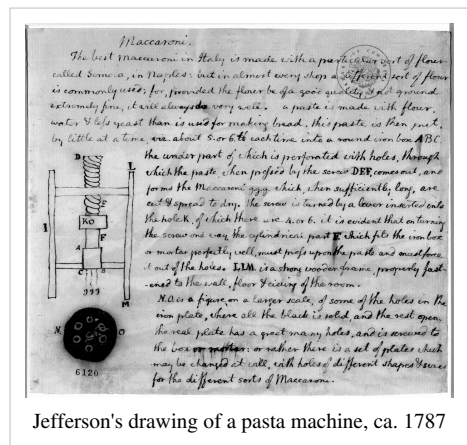 Maccaroni.
The best maccaroni in Italy is made with a particular sort of flour
called Semola, in Naples: but in almost every shop a different sort of flour
is commonly used; for, provided the flour be of a good quality, & not ground
extremely fine, it will always do very well. a paste is made with flour,
water & less yeast than is used for making bread. this paste is then put,
by little at a time, viz. about 5. or 6. ℔ each time into a round iron box ABC.
the under part of which is perforated with holes, through
which the paste, when pressed by the screw DEF, comes out, and
forms the Maccaroni g.g.g. which, when sufficiently long, are
cut & spread to dry. the screw is turned by a lever inserted into
the hole K, of which there are 4. or 6. it is evident that on turning
the screw one way, the cylindrical part F. which fits the iron box
or mortar perfectly well, must press upon the paste and must force
it out of the holes. LLM. is a strong wooden frame, properly fast-
ened to the wall, floor & cieling of the room.
N.O. is a figure, on a larger scale, of some of the holes in the
iron plate, where all the black is solid, and the rest open.
the real plate has a great many holes, and is screwed to
the box or mortar: or rather there is a set of plates which
may be changed at will, with holes of different shapes & sizes
for the different sorts of Maccaroni.
D
L
E
I
KO
F
A
C
B
ggg
M
N.
O
6120
Jefferson's drawing of a pasta machine, ca. 1787